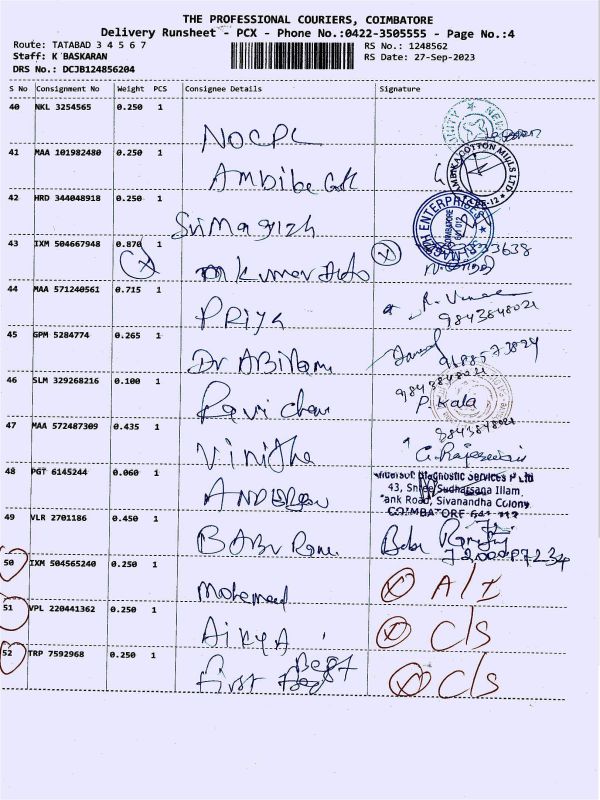 THE PROFESSIONAL COURIERS, COIMBATORE
Delivery Runsheet - PCX - Phone No.:0422-3505555 - Page No.:4
Route: TATABAD 3 4 5 6 7
RS No.: 1248562
Staff: K BASKARAN
RS Date: 27-Sep-2023
DRS No.: DCJB124856204
S No Consignment No Weight PCS Consignee Details Signature
40 NKL 3254565 0.250 1
NOCPL
41 MAA 101982480 0.250 1
Ambika
AMBIKA COTTON MILLS LTD
42 HRD 344048918 0.250 1
Sri Magizh
ENTERPRISES
COIMBATORE
641 012
43 IXM 504667948 0.870 1
mkumar Auto
44 MAA 571240561 0.715 1
PRiya
9843848021
45 GPM 5284774 0.265 1
Dr ABiRami
9688573894
46 SLM 329268216 0.100 1
9843848021
Ravi chan
P. Kala
47 MAA 572487309 0.435 1
9843848021
Vinitha
G. Rajeswari
48 PGT 6145244 0.060 1
Diagnostic Services P Ltd
43, Shree Sudharsana Illam,
Tank Road, Sivanandha Colony
COIMBATORE
ANDERSON
49 VLR 2701186 0.450 1
BABU Ram
Babu
50 IXM 504565240 0.250 1
Mohamed
A/I
51 VPL 220441362 0.250 1
AikyA
C/S
52 TRP 7592968 0.250 1
Best
First
C/S